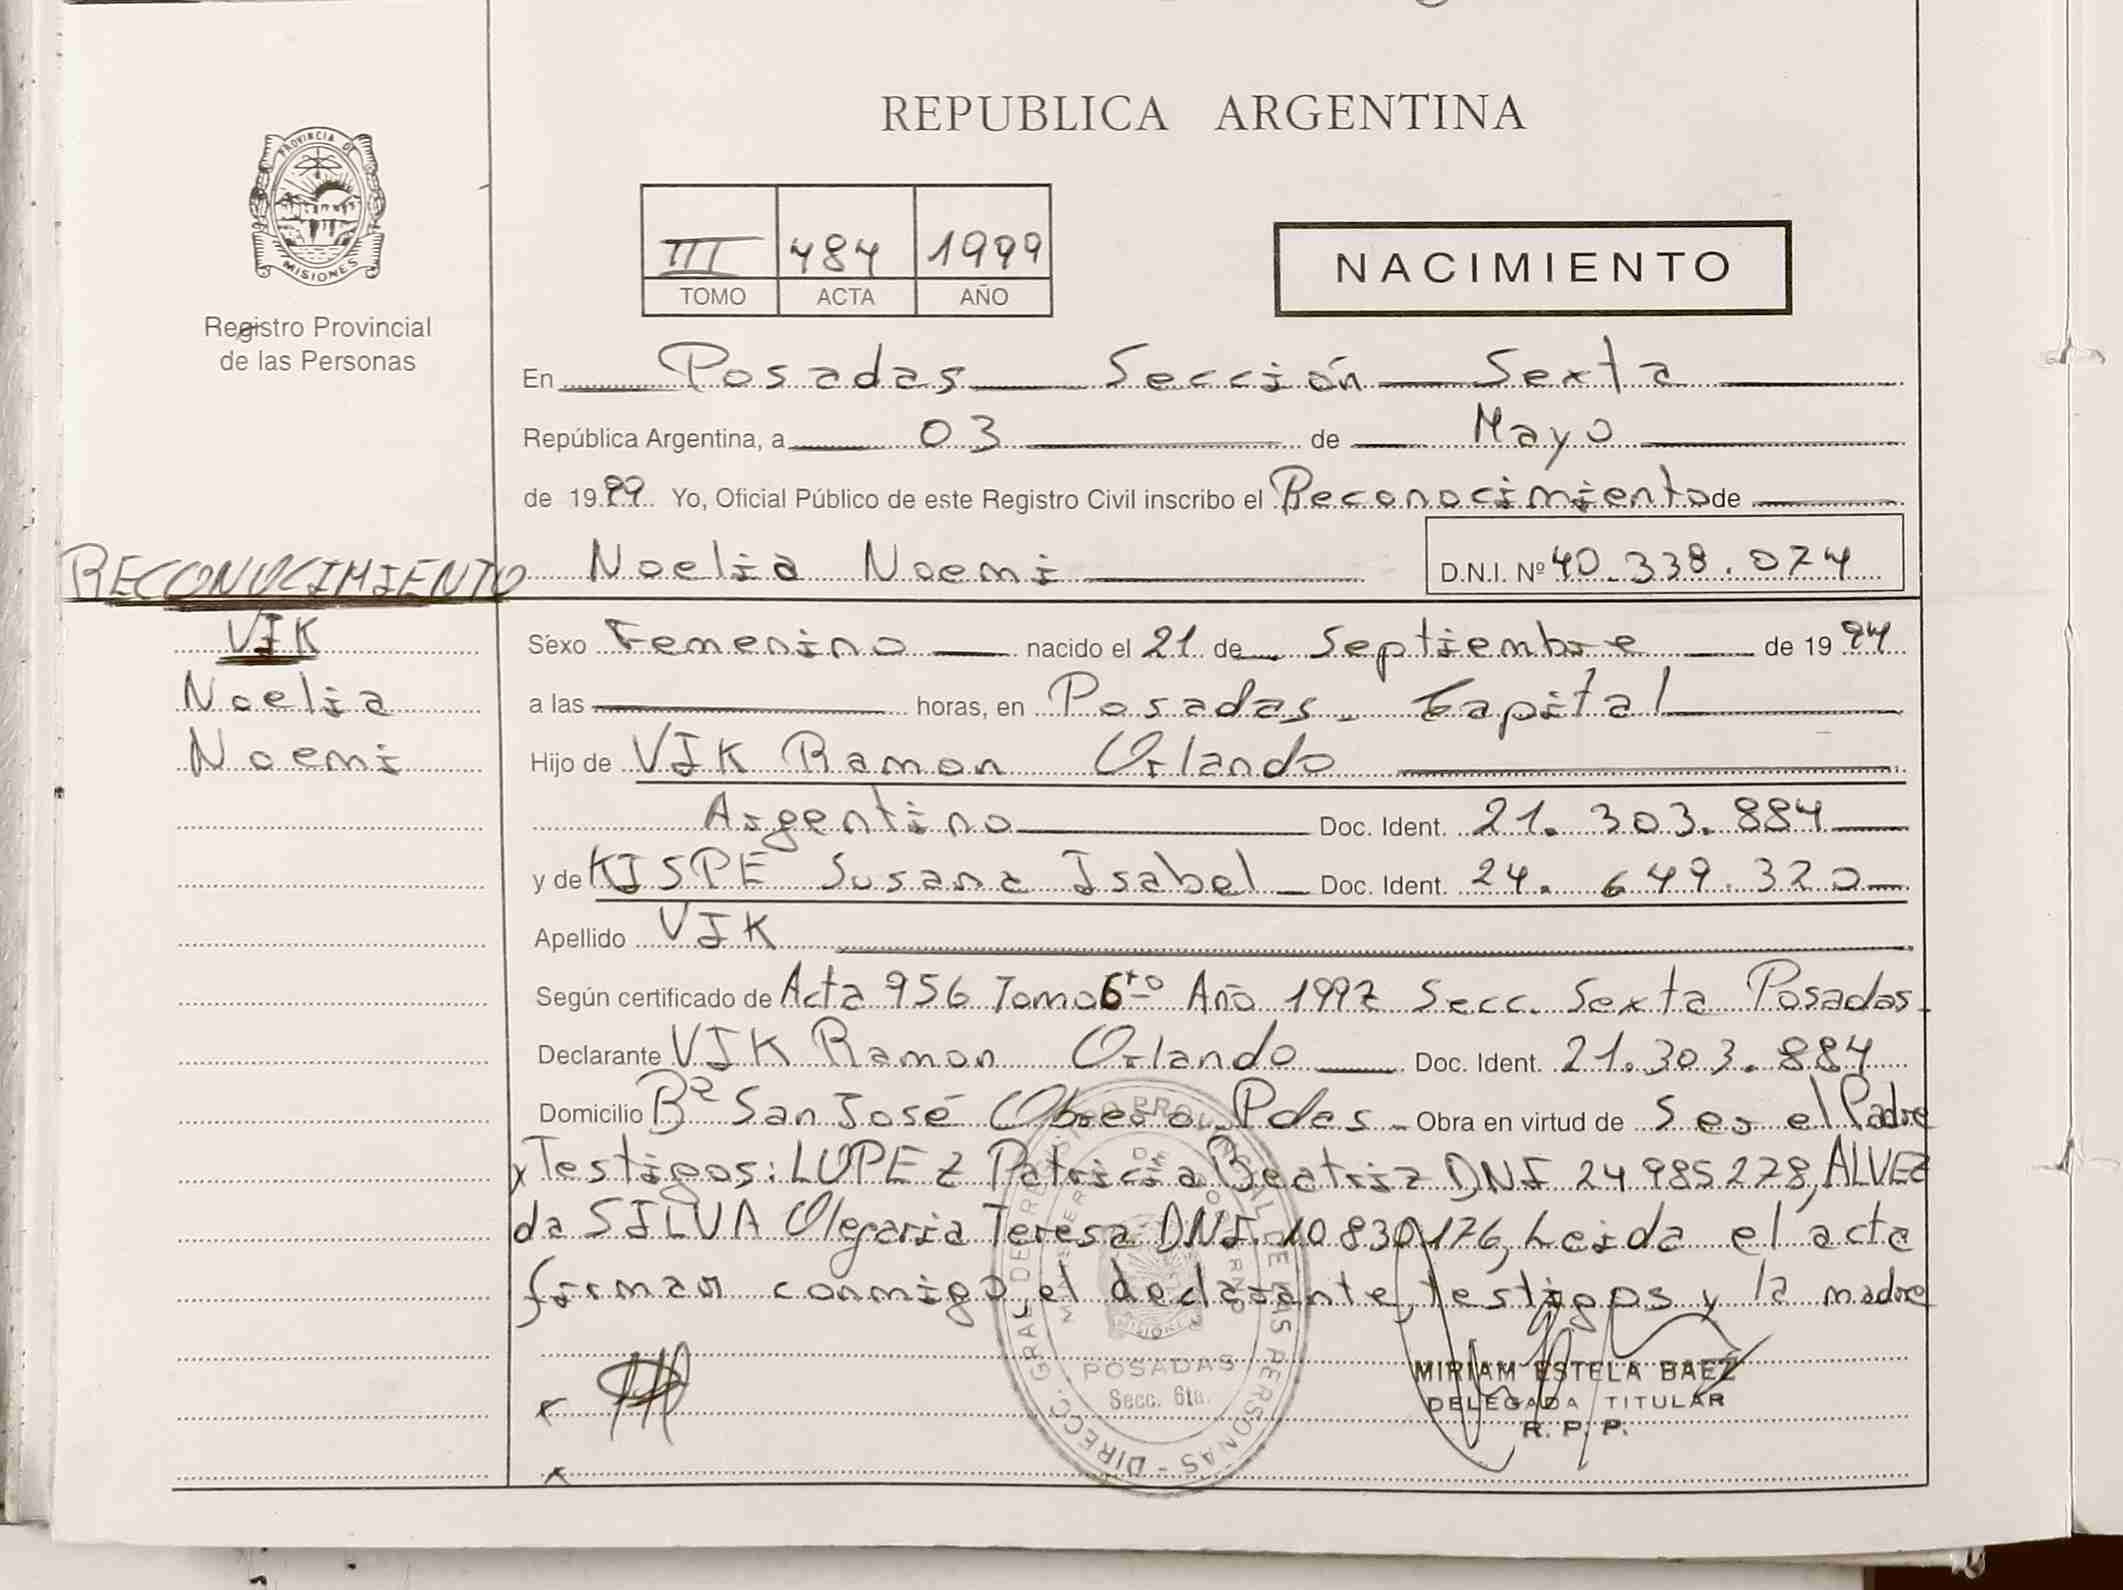 REPUBLICA ARGENTINA
PROVINCIA DE
MISIONES
Registro Provincial
de las Personas
III 484 1999
TOMO ACTA AÑO
NACIMIENTO
En Posadas Sección Sexta
República Argentina, a 03 de Mayo
de 1999. Yo, Oficial Público de este Registro Civil inscribo el Reconocimiento de
RECONOCIMIENTO
Noelia Noemi D.N.I. Nº 40.338.074
VIK
Noelia
Noemi
Sexo Femenino nacido el 21 de Septiembre de 19 94
a las horas, en Posadas - Capital
Hijo de VIK Ramon Orlando
Argentino Doc. Ident. 21.303.884
y de KISPE Susana Isabel Doc. Ident. 24.649.320
Apellido VIK
Según certificado de Acta 956 Tomo 6to Año 1997 Secc. Sexta Posadas.
Declarante VIK Ramon Orlando Doc. Ident. 21.303.884
Domicilio Bº San José Obrero Pdas - Obra en virtud de Ser el Padre
y Testigos: LOPEZ Patricia Beatriz DNI 24985278, ALVEZ
da SILVA Olegaria Teresa DNI. 10830176, Leida el acta
firman conmigo, el declarante, testigos y la madre
DIRECC. GRAL. DE REGISTRO PROVINCIAL DE LAS PERSONAS
MISIONES
POSADAS
Secc. 6ta.
MIRIAM ESTELA BAEZ
DELEGADA TITULAR
R. P. P.